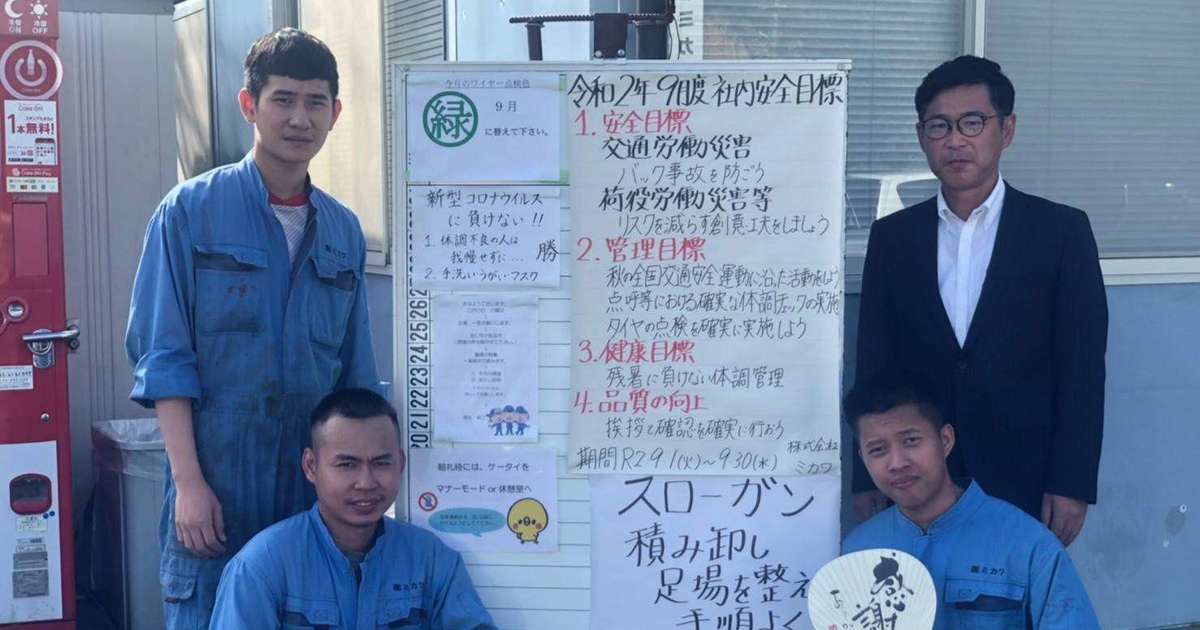 冷媒
ON
冷媒
OFF
1本無料!
今月のワイヤー点検色
緑
9月
に替えて下さい。
新型コロナウイルス
に負けない!!
1. 体調不良の人は
我慢せずに…
2. 手洗いうがいマスク
勝
26
25
24
23
22
21
20
朝礼時には、ケータイを
マナーモード or 休憩室へ
令和2年 9月度 社内安全目標
1. 安全目標
交通労働災害
バック事故を防ごう
荷役労働災害等
リスクを減らす創意工夫をしましょう
2. 管理目標
秋の全国交通安全運動に沿った活動をしよう
点呼等における確実な体調チェックの実施
タイヤの点検を確実に実施しよう
3. 健康目標
残暑に負けない体調管理
4. 品質の向上
挨拶と確認を確実に行おう
期間 R2 9.1(火)~9.30(水)
株式会社
ミカワ
スローガン
積み卸し
足場を整え
手順よく
㈱ミカワ
㈱ミカワ
㈱ミカワ
感謝